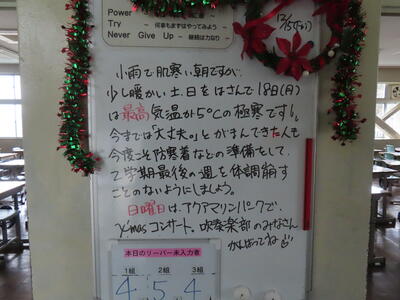 Power
Try ～ 何事もまずはやってみよう ～
Never Give Up ～ 継続は力なり ～
12/15(金)
小雨で肌寒い朝ですが、
少し暖かい土、日をはさんで18日(月)
は最高気温が5℃の極寒です!。
今までは"大丈夫。"とがまんしてきた人も
今度こそ防寒着などの準備をして、
2学期最後の週を体調崩す
ことのないようにしましょう。
日曜日は、アクアマリンパークで、
X'masコンサート。吹奏楽部のみなさん
がんばってね
本日のリーバー未入力者
1組 2組 3組
4 5 4